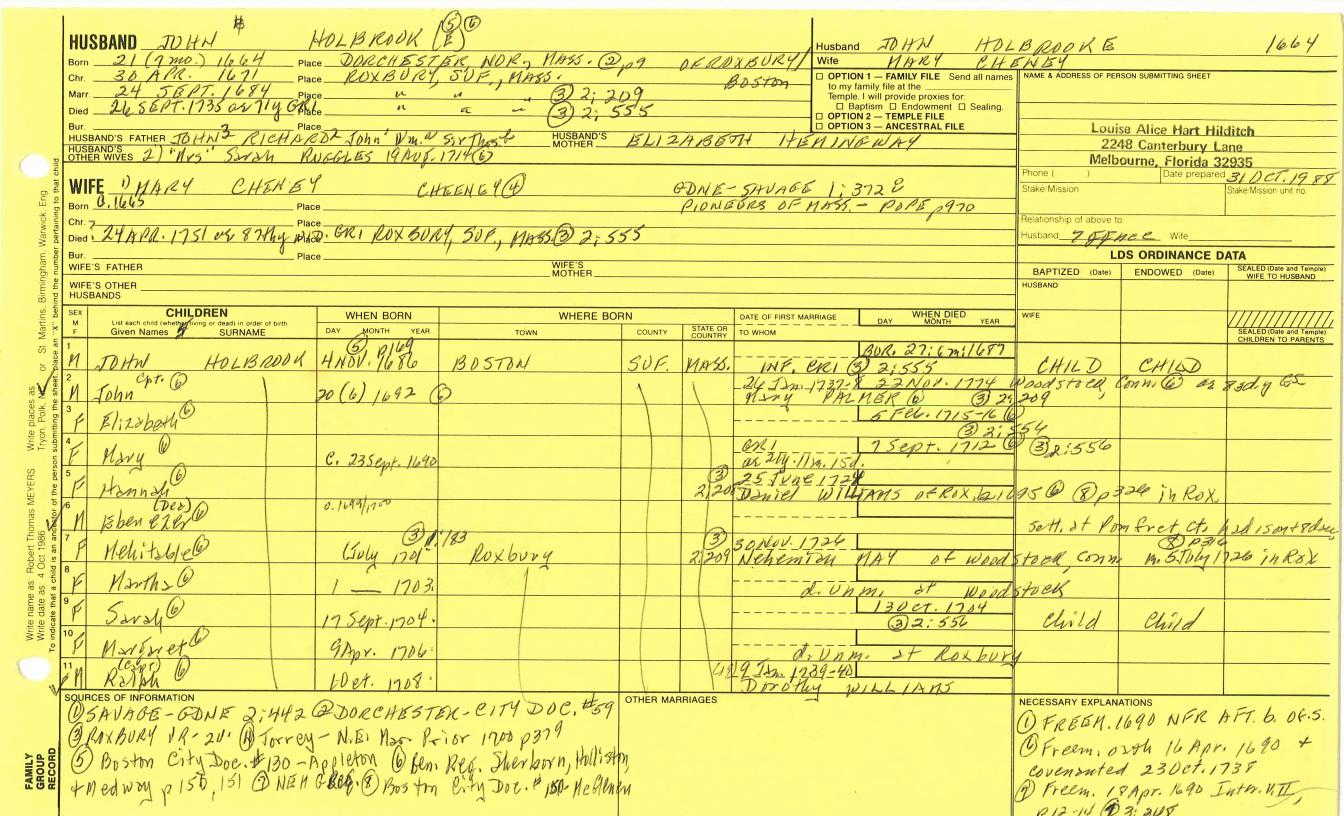 HUSBAND JOHN HOLBROOK (E) ⑤ ⑥
Born 21 (7 mo.) 1664 Place DORCHESTER, NOR., MASS. ② p9 OF ROXBURY/
Chr. 30 APR. 1671 Place ROXBURY, SUF., MASS. BOSTON
Marr 24 SEPT. 1684 Place " " " ③ 2; 209
Died 26 SEPT. 1735 as 71y GRI Place " " " ③ 2; 555
Bur. Place
HUSBAND'S FATHER JOHN³ RICHARD² John¹ Wm.
HUSBAND'S MOTHER ELIZABETH HEMINGWAY
HUSBAND'S OTHER WIVES 2) "Mrs" Sarah RUGGLES 19 AUG. 1714 ⑥
Husband JOHN HOLBROOKE 1664
Wife MARY CHENEY
☐ OPTION 1 — FAMILY FILE Send all names
to my family file at the
Temple. I will provide proxies for:
☐ Baptism ☐ Endowment ☐ Sealing.
☐ OPTION 2 — TEMPLE FILE
☐ OPTION 3 — ANCESTRAL FILE
NAME & ADDRESS OF PERSON SUBMITTING SHEET
Louise Alice Hart Hilditch
2248 Canterbury Lane
Melbourne, Florida 32935
Phone ( ) Date prepared 31 OCT. 1988
Stake/Mission Stake/Mission unit no.
Relationship of above to:
Husband Wife
WIFE 1) MARY CHENEY CHEENEY ④ GDNE-SAVAGE 1; 372 &
Born C. 1665 Place PIONEERS OF MASS. - POPE p970
Chr. ? Place
Died 24 APR. 1751 as 87th y WID. GRI Place ROXBURY, SUF., MASS. ③ 2; 555
Bur. Place
WIFE'S FATHER WIFE'S MOTHER
WIFE'S OTHER HUSBANDS
LDS ORDINANCE DATA
BAPTIZED (Date) ENDOWED (Date) SEALED (Date and Temple) WIFE TO HUSBAND
HUSBAND
WIFE
SEALED (Date and Temple) CHILDREN TO PARENTS
SEX M F
CHILDREN
List each child (whether living or dead) in order of birth
Given Names SURNAME
WHEN BORN DAY MONTH YEAR
WHERE BORN TOWN COUNTY STATE OR COUNTRY
DATE OF FIRST MARRIAGE TO WHOM
WHEN DIED DAY MONTH YEAR
1 M JOHN HOLBROOK ⑤ p169 4 NOV. 1686 BOSTON SUF. MASS. INF. GRI ③ 2; 555 BUR. 27; 6m; 1687 CHILD CHILD
2 M Cpt. ⑥ John 20 (6) 1692 ⑥ 24 Jan. 1737-8 22 Nov. 1774 Woodstock, Conn. ⑥ as 83d.y GS
Mary PALMER ⑥ ③ 2; 209
3 F Elizabeth ⑥ 5 Feb. 1715-16 ⑥ ③ 2; 554
4 F Mary ⑥ C. 23 Sept. 1690 GRI 7 Sept. 1712 ⑥ ③ 2; 556
as 21y. 11m. 15d.
5 F Hannah ⑥ ③ 2; 209 25 June 1724
Daniel WILLIAMS of Rox. b. 1695 ⑥ ⑧ p326 in Rox.
6 M (Dea) Ebenezer ⑥ C. 1699/1700 sett. at Pomfret Ct. had 1 son + 8 dau.
7 F Mehitable ⑥ ③ 1; 183 1 July 1701 Roxbury ③ 2; 209 30 Nov. 1726 ⑧ p316
Nehemiah MAY of Woodstock, Conn. m. 5 July 1726 in Rox
8 F Martha ⑥ 1 — 1703. d. unm. at Woodstock
9 F Sarah ⑥ 17 Sept. 1704. 13 Oct. 1704 ③ 2; 556 Child Child
10 F Margaret ⑥ 9 Apr. 1706. d. unm. at Roxbury
11 M (Cpt) Ralph ⑥ 1 Oct. 1708. 9 Jan. 1739-40
Dorothy WILLIAMS
SOURCES OF INFORMATION
① SAVAGE-GDNE 2; 442 ② DORCHESTER-CITY DOC. #59
③ ROXBURY VR-2V. ④ Torrey-N.E. Mar. Prior 1700 p379
⑤ Boston City Doc. #130-Appleton ⑥ Gen. Reg. Sherborn, Holliston
+ Medway p 150, 151 ⑦ NEH G Reg. ⑧ Boston City Doc. # 150-McGlenen
OTHER MARRIAGES
NECESSARY EXPLANATIONS
① FREEM. 1690 NFR AFT. b. OF S.
⑥ Freem. oath 16 Apr. 1690 +
covenanted 23 Oct. 1738
⑦ Freem. 18 Apr. 1690 Inter. V. II,
p12-14 ⑦ 3; 248
FAMILY GROUP RECORD
Write name as: Robert Thomas MEYERS Write places as: Tryon, Polk, N.C. or St. Martins, Birmingham, Warwick, Eng.
Write date as: 4 Oct 1986
To indicate that a child is an ancestor of the person submitting the sheet, place an "X" behind the number pertaining to that child